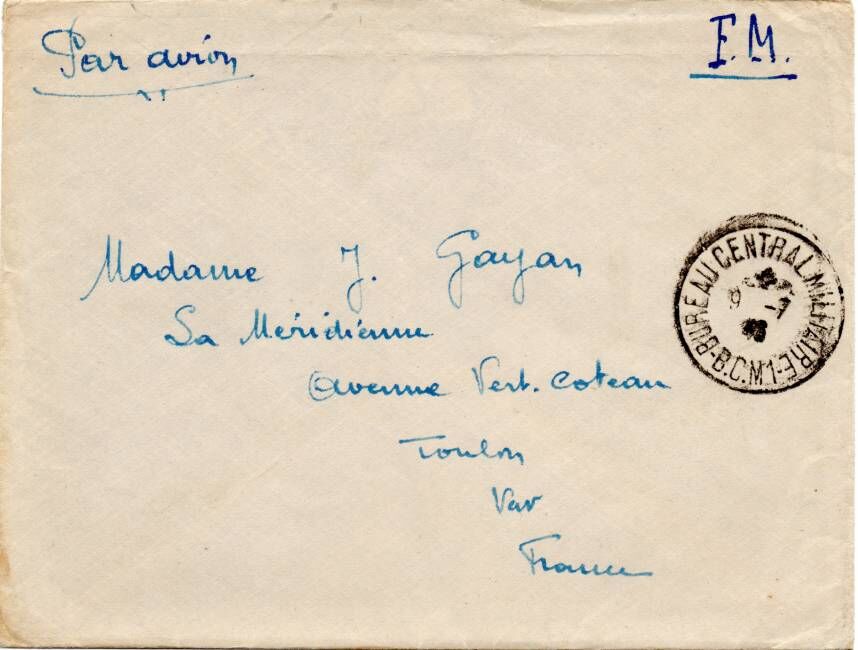 Par avion
F.M.
Madame J. Gayan
La Méridienne
Avenue Vert. Coteau
Toulon
Var
France
BUREAU CENTRAL MILITAIRE
-B.C.M1-